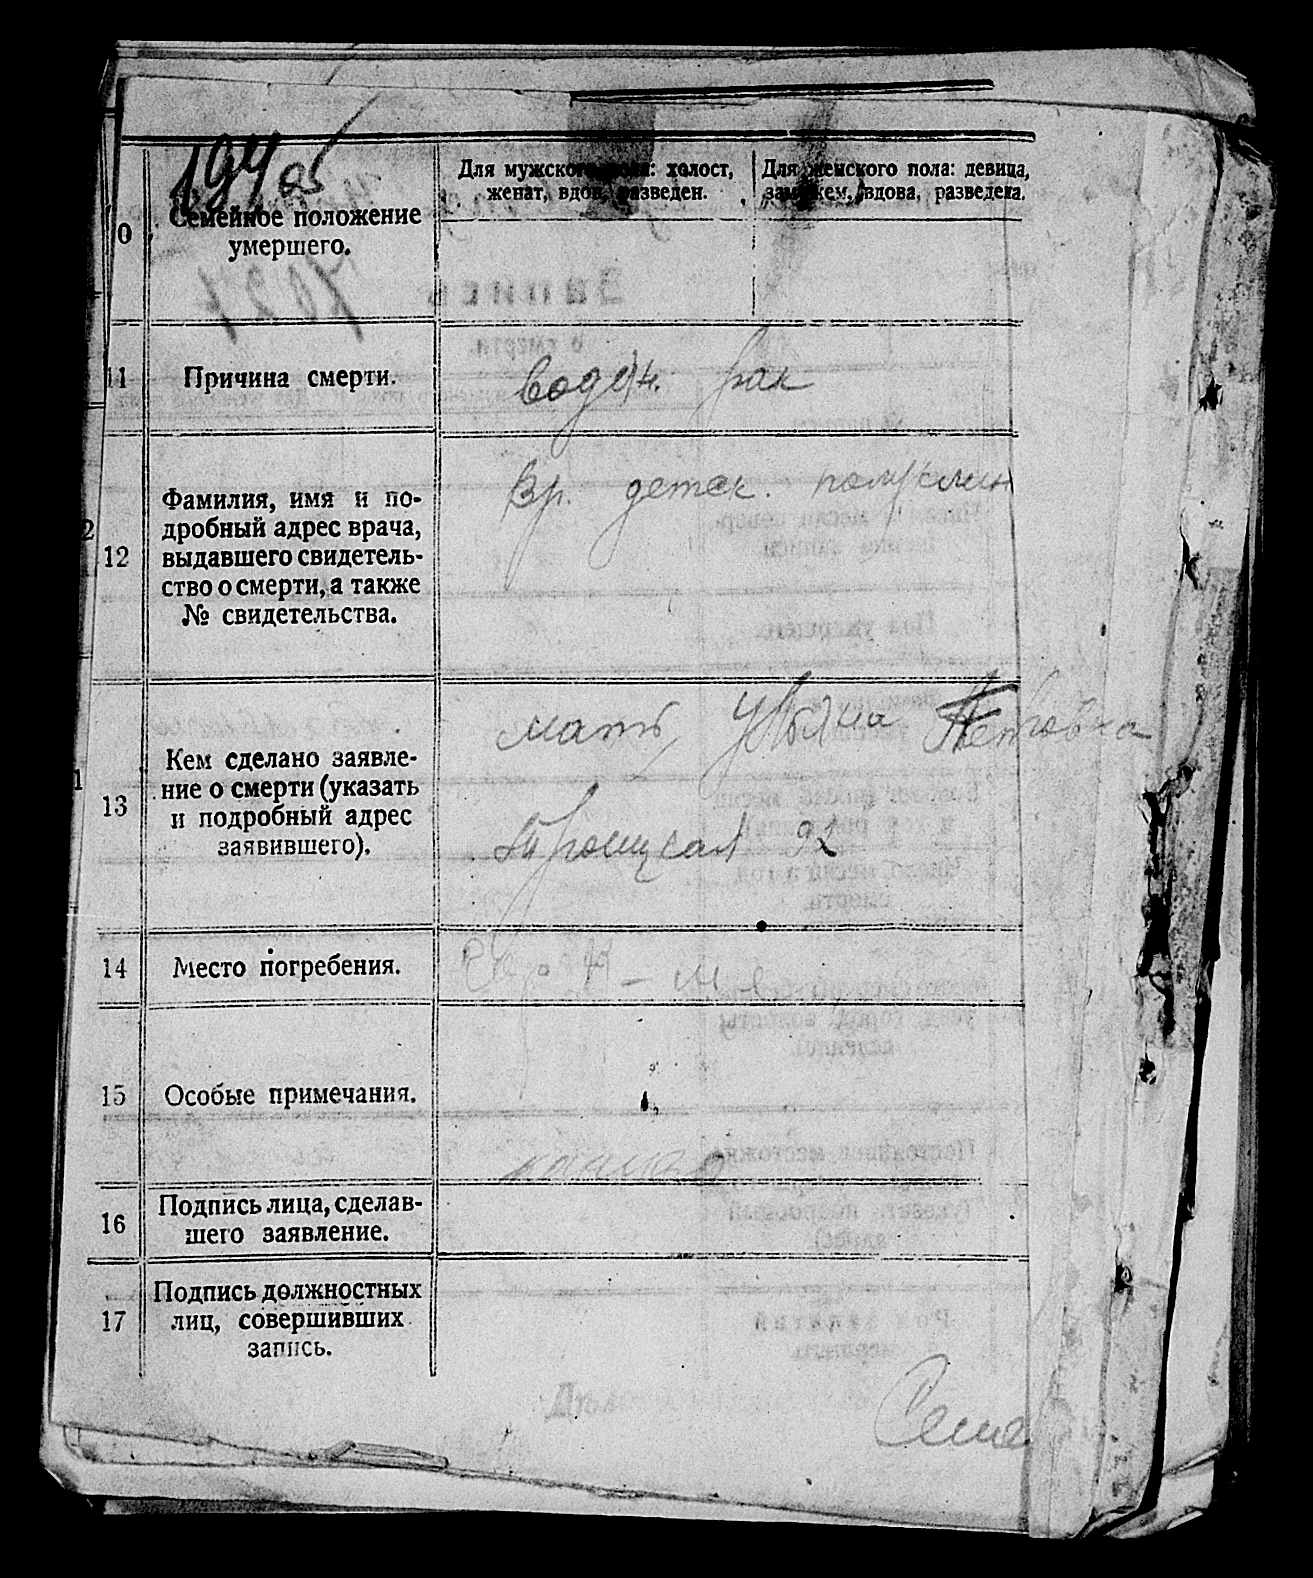 Для мужского пола: холост,
женат, вдов, разведен.
Для женского пола: девица,
замужем, вдова, разведена.
0
Семейное положение
умершего.
11
Причина смерти.
водян. рак
12
Фамилия, имя и по-
дробный адрес врача,
выдавшего свидетель-
ство о смерти, а также
№ свидетельства.
Вр. детск. полуклин
13
Кем сделано заявле-
ние о смерти (указать
и подробный адрес
заявившего).
мать, Петровна
Троицкая 92
14
Место погребения.
15
Особые примечания.
16
Подпись лица, сделав-
шего заявление.
17
Подпись должностных
лиц, совершивших
запись.